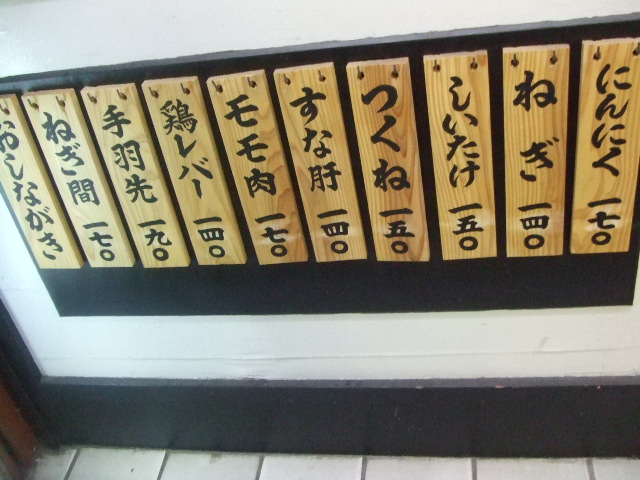 にんにく 一七〇
ねぎ 一四〇
しいたけ 一五〇
つくね 一五〇
すな肝 一四〇
モモ肉 一七〇
鶏レバー 一四〇
手羽先 一九〇
ねぎ間 一七〇
おしながき